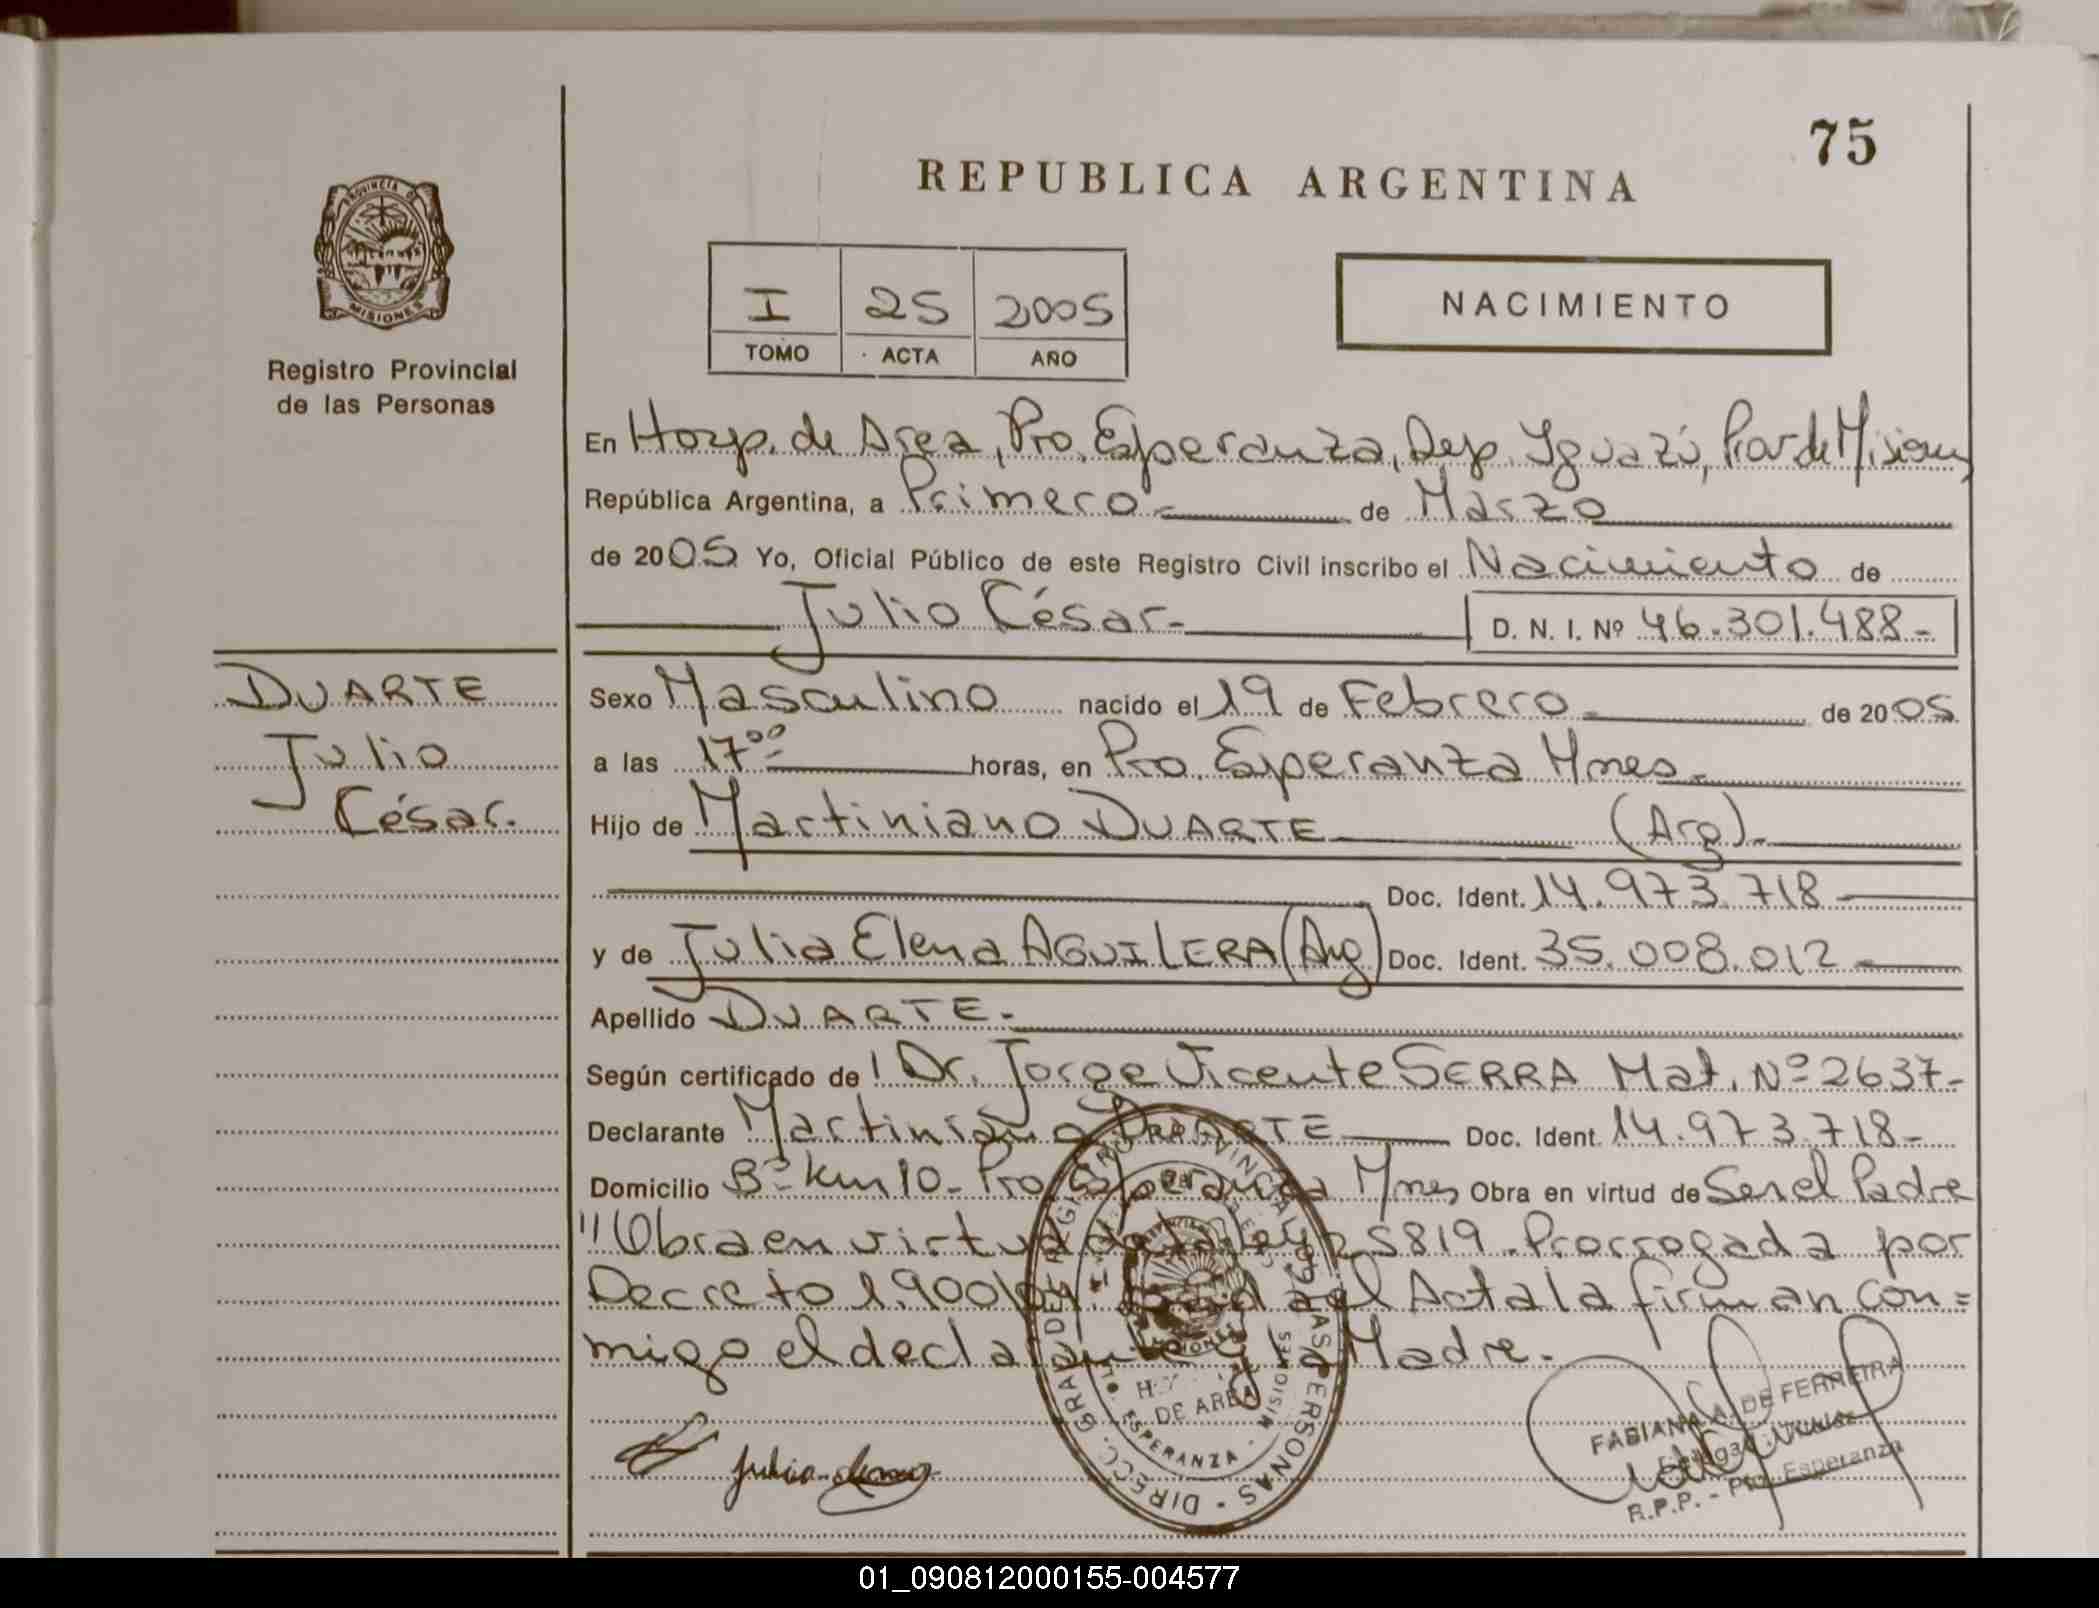 75
REPUBLICA ARGENTINA
PROVINCIA DE
MISIONES
Registro Provincial
de las Personas
I 25 2005
TOMO ACTA AÑO
NACIMIENTO
En Hosp. de Area, Pto. Esperanza, Dep. Iguazú, Prov de Misiones
República Argentina, a Primero.- de Marzo
de 2005 Yo, Oficial Público de este Registro Civil inscribo el Nacimiento de
Julio César.- D. N. I. Nº 46.301.488-
DUARTE
Julio
César.
Sexo Masculino nacido el 19 de Febrero de 2005
a las 17⁰⁰ horas, en Pto. Esperanza Mnes.
Hijo de Martiniano DUARTE (Arg).-
Doc. Ident. 14.973.718
y de Julia Elena AGUILERA (Arg) Doc. Ident. 35.008.012
Apellido DUARTE.-
Según certificado de Dr. Jorge Vicente SERRA Mat. Nº 2637-
Declarante Martiniano DUARTE Doc. Ident. 14.973.718-
Domicilio Bº Km 10- Pto Esperanza Mnes Obra en virtud de Ser el Padre
"Obra en virtud de la Ley 25819. Prorrogada por
Decreto 1.900/04. el Acta la firman con=
migo el declarante y la Madre.
DIRECC. GRAL DEL REGISTRO PROVINCIAL DE LAS PERSONAS
DE AREA
ESPERANZA - MISIONES
Julia Elena
FABIANA A. DE FERREIRA
R.P.P. - Pto. Esperanza
01_090812000155-004577